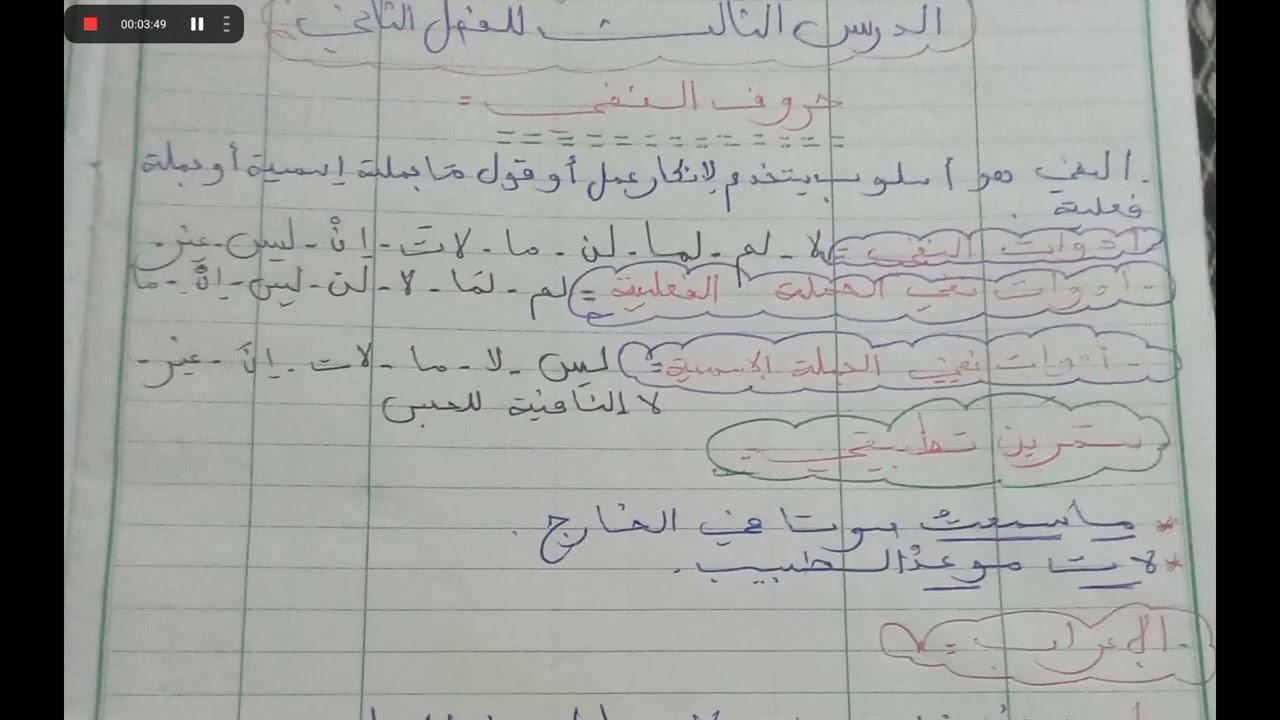 00:03:49
الدرس الثالث للفصل الثاني
حروف النفي =
. النفي هو أسلوب يستخدم لإنكار عمل أو قول ما بجملة إسمية أو جملة
فعلية .
أدوات النفي = لا - لم - لما - لن - ما - لات - إنْ - ليس - غير -
- أدوات نفي الجملة الفعلية = لم - لمّا - لا - لن - ليس - إنْ - ما
- أدوات نفي الجملة الإسمية = ليس - لا - ما - لات - إنَ - غير -
لا النافية للجنس
تمرين تطبيقي =
* ما سمعتُ صوتا في الخارج .
* لات موعدُ الطبيب .
- الإعراب =